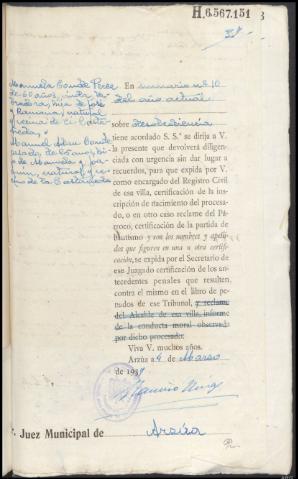 H.6.567.151
Manuela Conde Perez
de 60 años,
hija de José
y Ramona, natural
y vecina de
Manuel Conde
hijo
de Manuela y
natural y ve-
cino de
En sumario nº 10
del año actual
sobre desobediencia
tiene acordado S. Sª se dirija a V.
la presente que devolverá diligen-
ciada con urgencia sin dar lugar a
recuerdos, para que expida por V.
como encargado del Registro Civil
de esa villa, certificación de la ins-
cripción de nacimiento del procesa-
do, o en otro caso reclame del Pá-
rroco, certificación de la partida de
bautismo y con los nombres y apelli-
dos que figuren en una u otra certifi-
cación, se expida por el Secretario de
ese Juzgado certificación de los an-
tecedentes penales que resulten
contra el mismo en el libro de pe-
nados de ese Tribunal, y reclame
del Alcalde de esa villa, informe
de la conducta moral observada
por dicho procesado.
Viva V. muchos años.
Arzúa a 4 de Marzo
de 1939
Juez Municipal de Arzúa